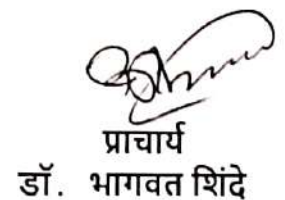 प्राचार्य
डॉ. भागवत शिंदे